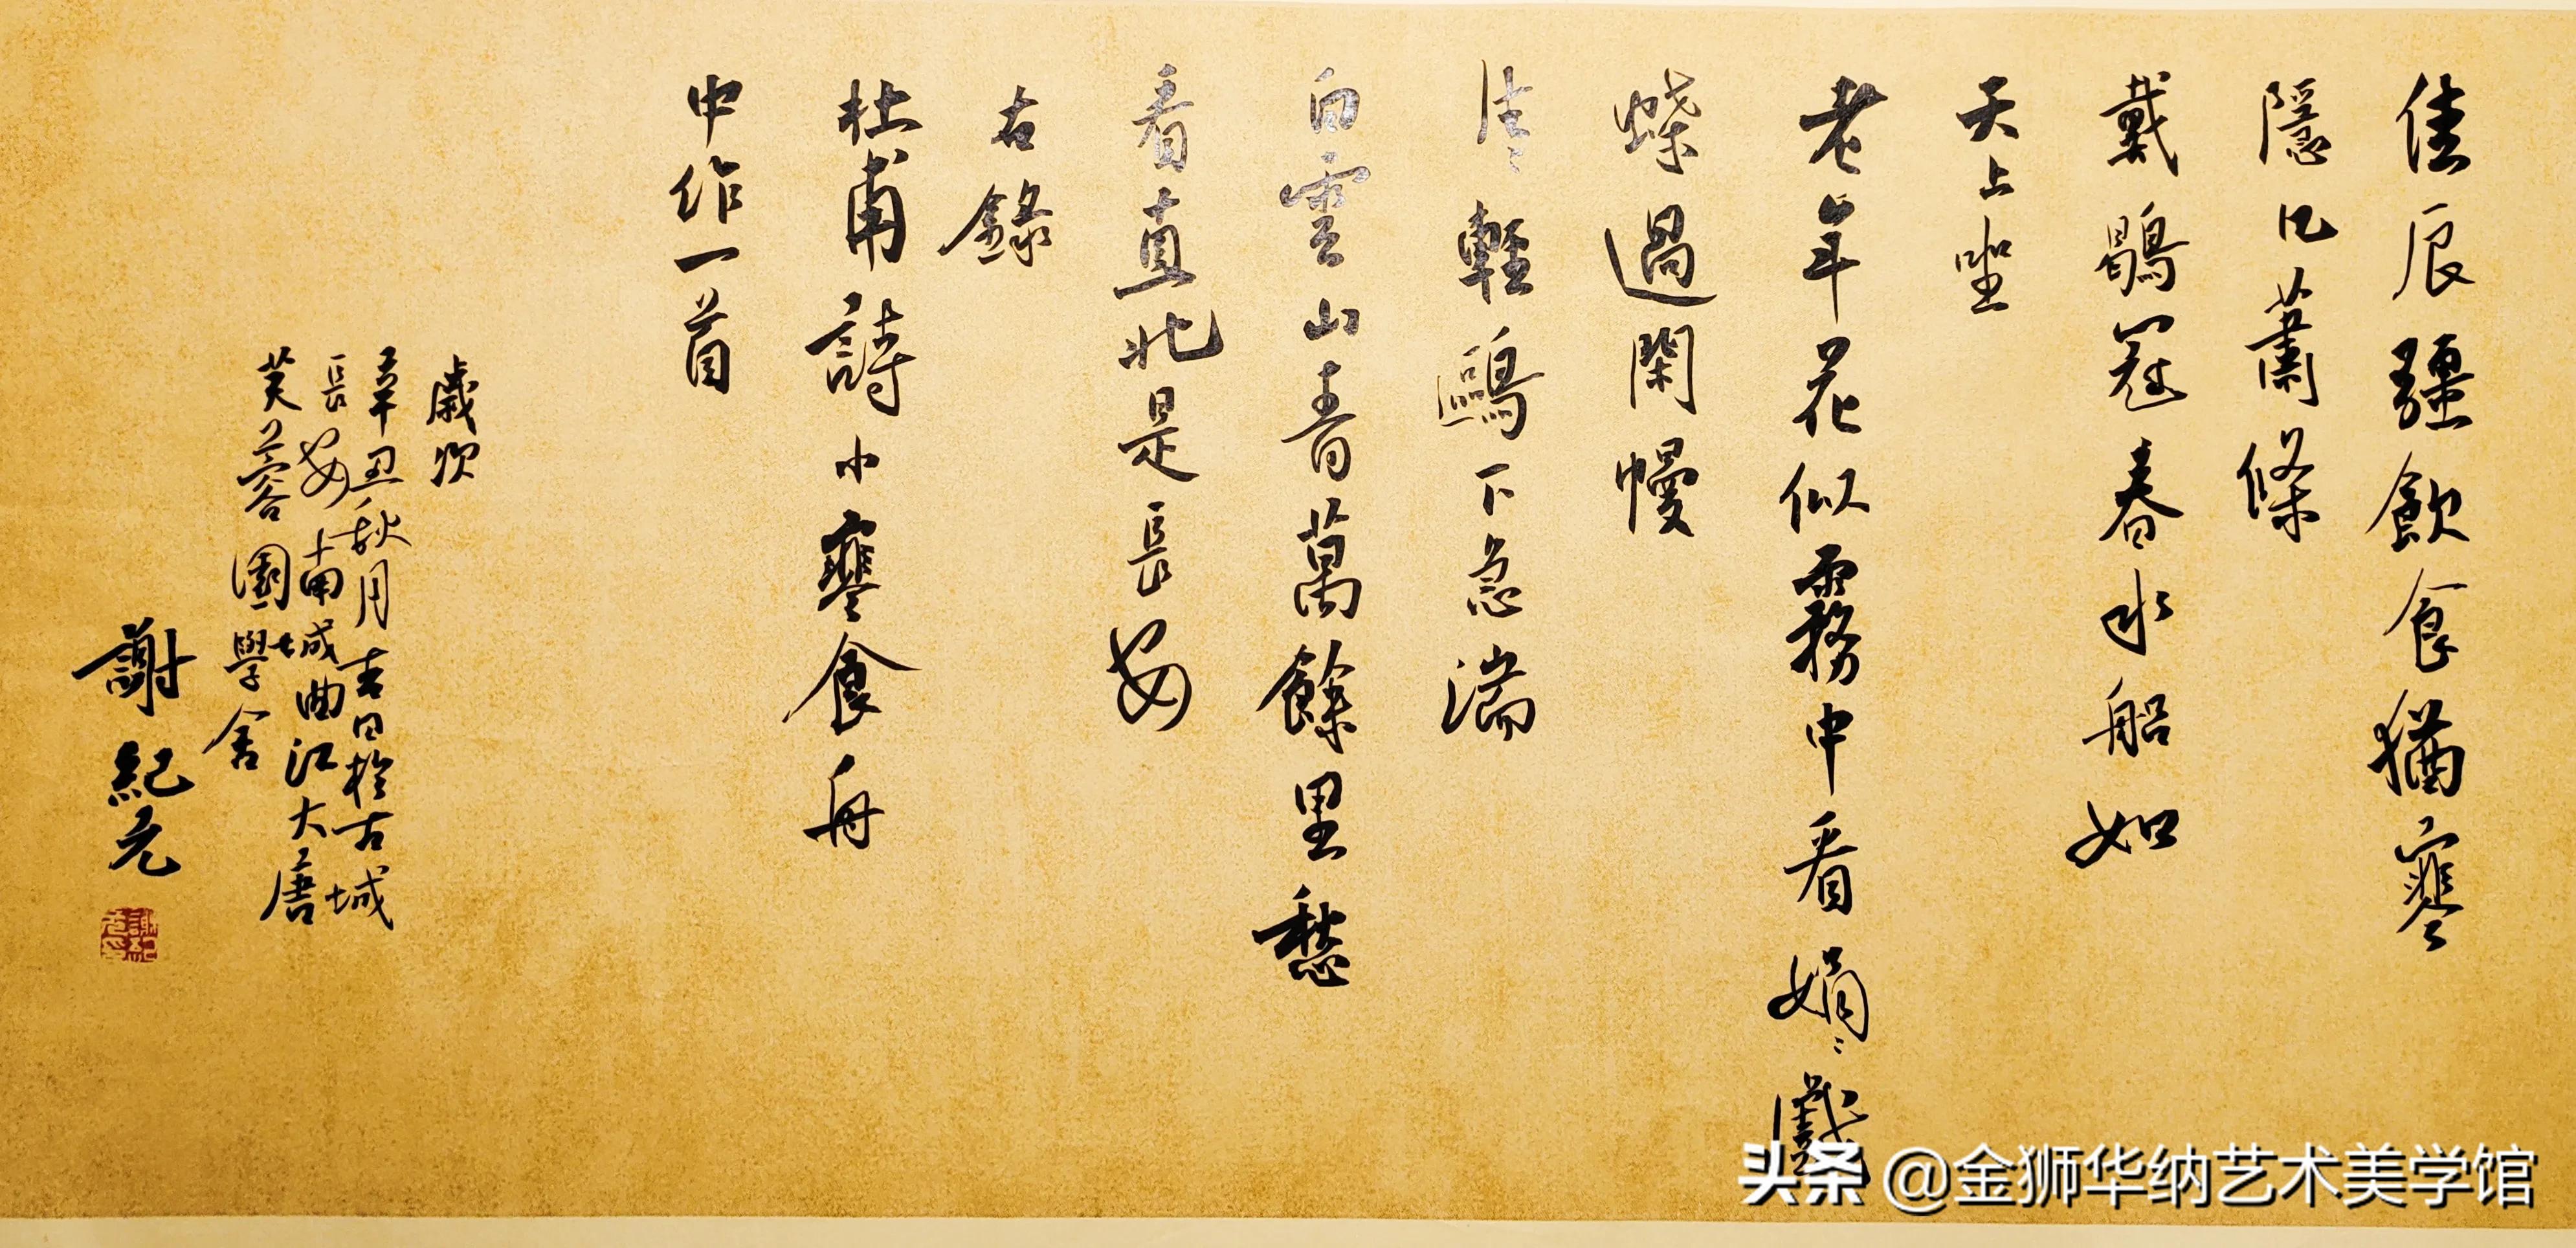 佳辰彊飲食猶寒
隱几蕭條
戴鶡冠春水船如
天上坐
老年花似霧中看娟〻戲
蝶過閑幔
片〻輕鷗下急湍
白雲山青萬餘里愁
看直北是長安
右錄
杜甫詩小寒食舟
中作一首
歲次
辛丑秋月吉日於古城
長安南城曲江大唐
芙蓉園學舍
謝紀元
謝紀元印
头条 @金狮华纳艺术美学馆